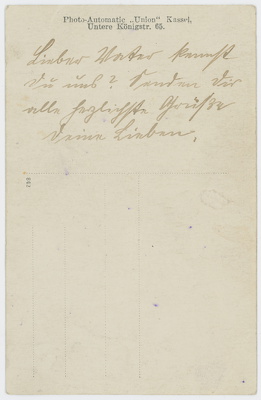 Photo-Automatic „Union" Kassel,
Untere Königstr. 65.
Lieber Vater kennst
du uns? Senden dir
alle herzlichste Grüße
deine Lieben.